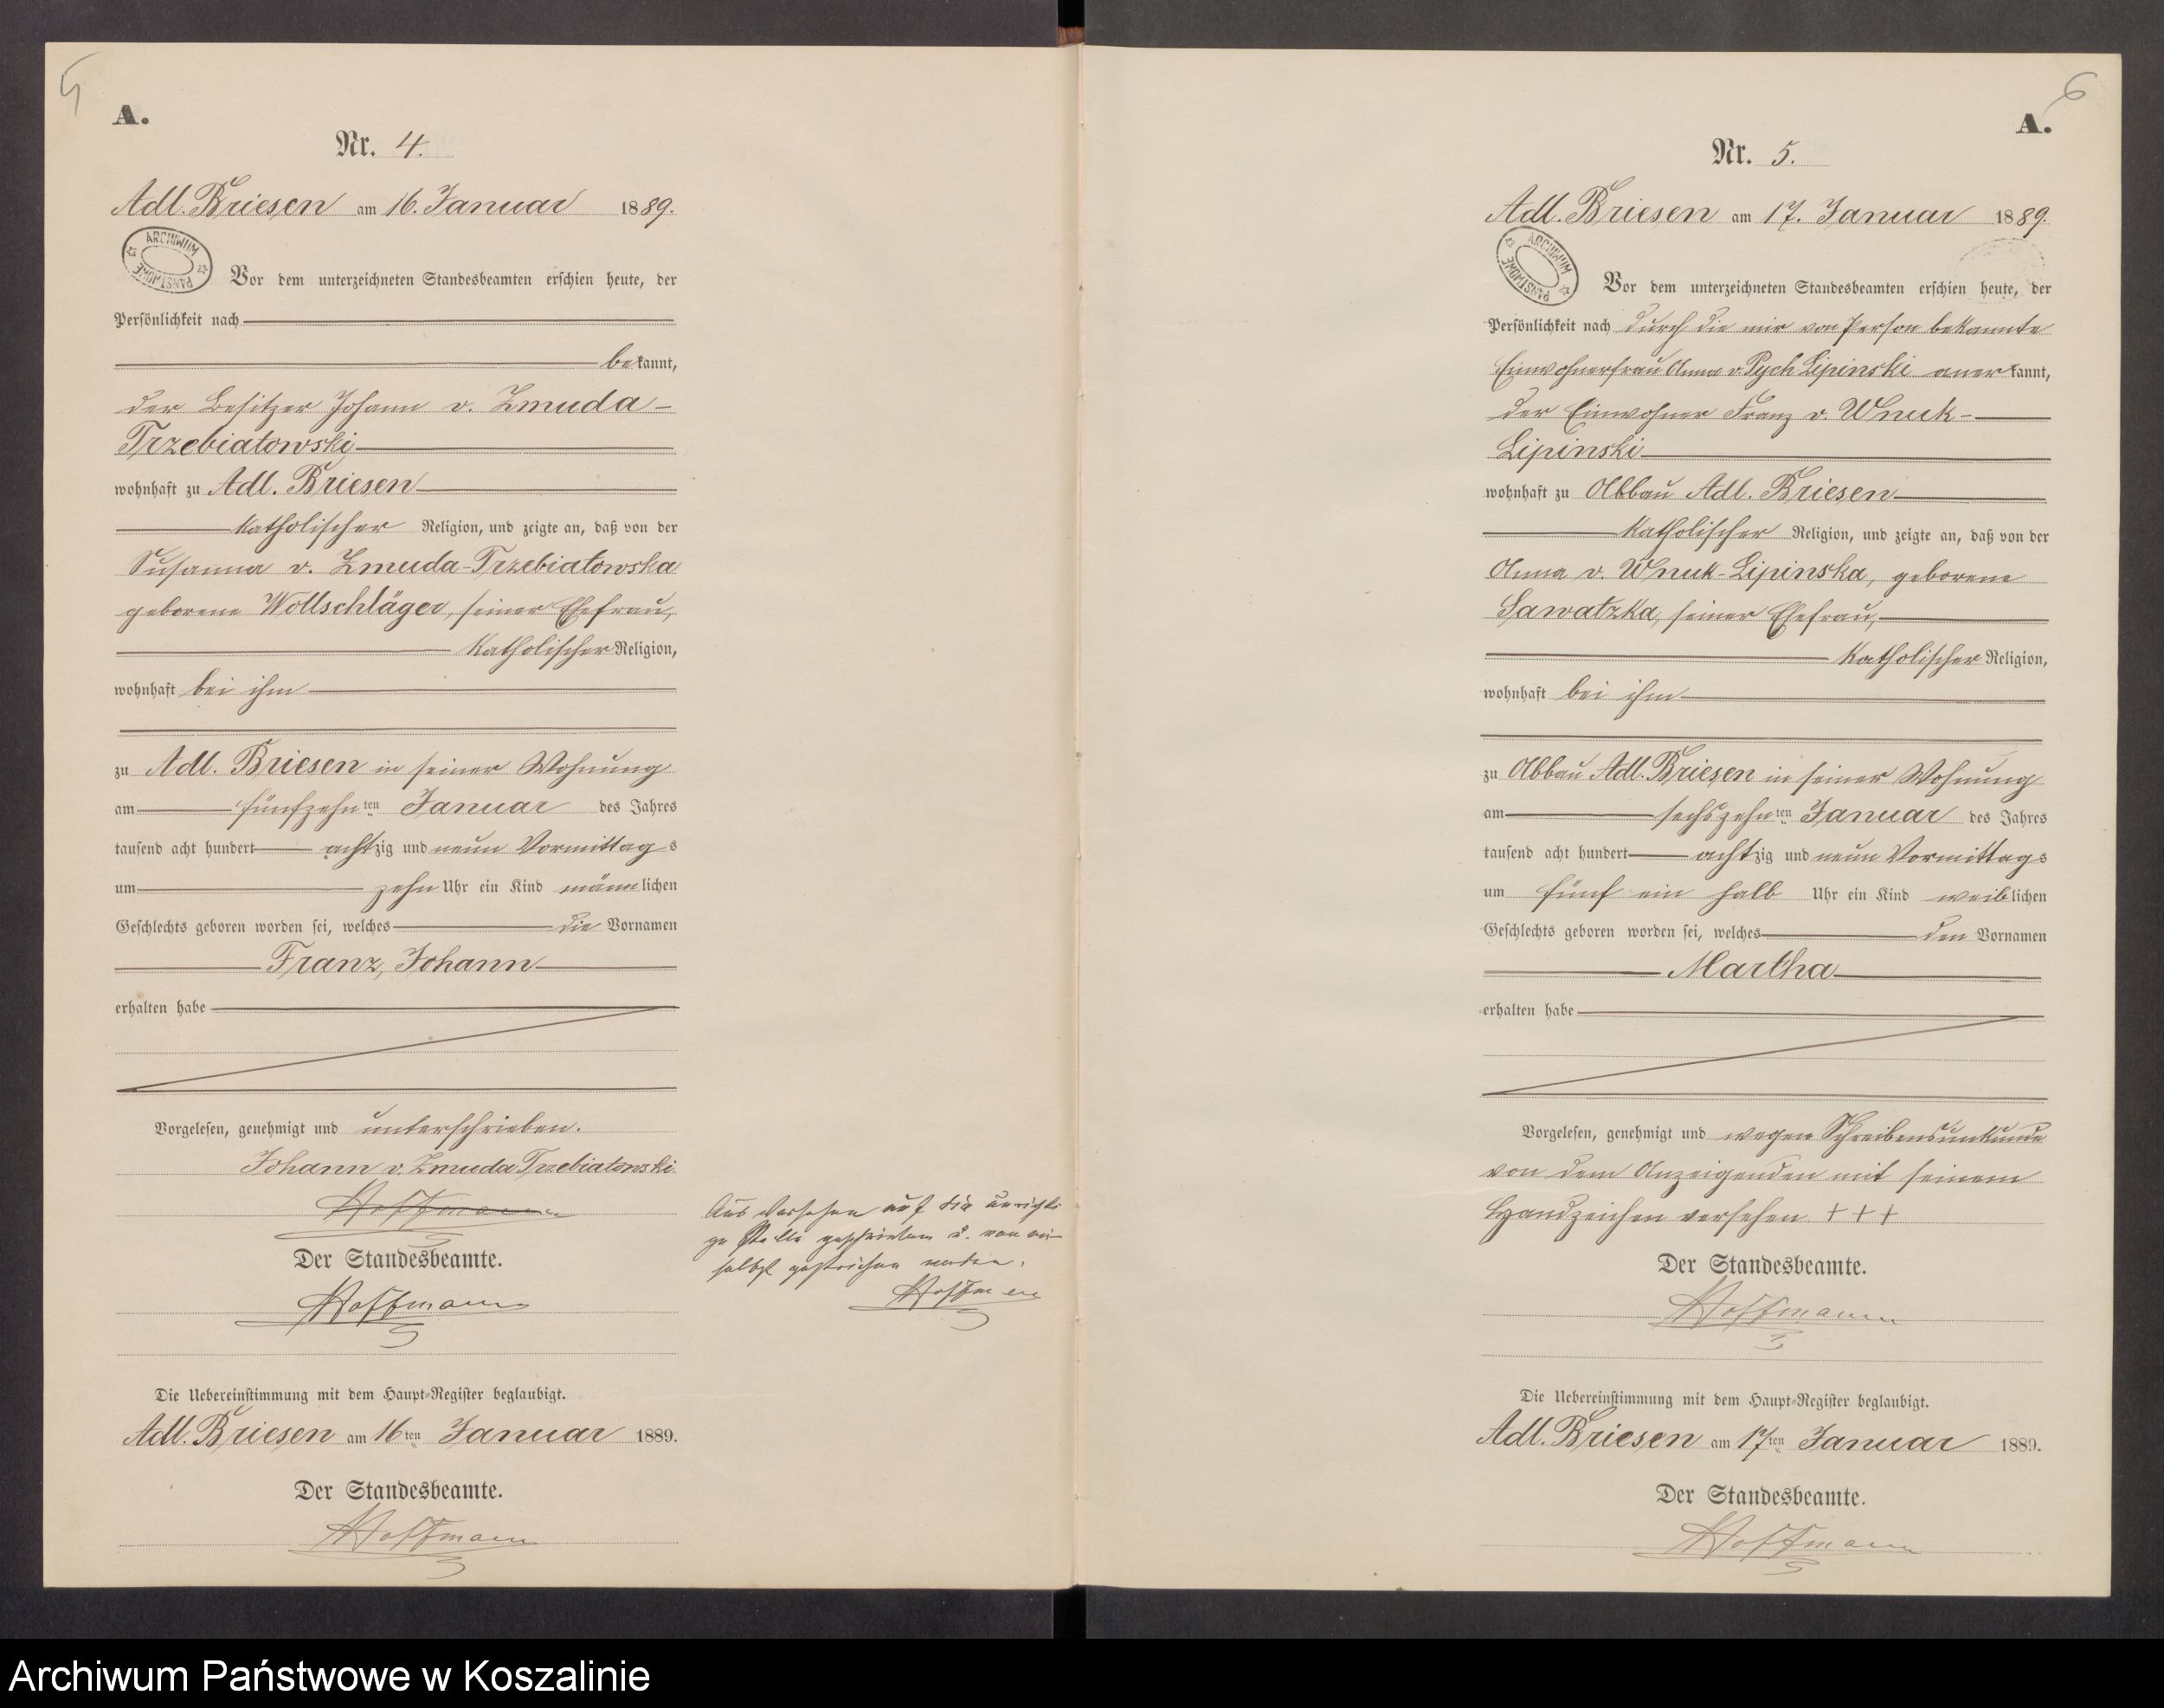 5
A.
Nr. 4.
Adl. Briesen am 16. Januar 1889.
ARCHIWUM PAŃSTWOWE
Vor dem unterzeichneten Standesbeamten erschien heute, der
Persönlichkeit nach
bekannt,
der Besitzer Johann v. Zmuda-
Trzebiatowski
wohnhaft zu Adl. Briesen
katholischer Religion, und zeigte an, daß von der
Susanna v. Zmuda-Trzebiatowska
geborene Wollschläger, seiner Ehefrau,
katholischer Religion,
wohnhaft bei ihm
zu Adl. Briesen in seiner Wohnung
am fünfzehnten Januar des Jahres
tausend acht hundert achtzig und neun Vormittags
um zehn Uhr ein Kind männlichen
Geschlechts geboren worden sei, welches die Vornamen
Franz, Johann
erhalten habe
Vorgelesen, genehmigt und unterschrieben.
Johann v. Zmuda Trzebiatowski
Hoffmann
Der Standesbeamte.
Hoffmann
Aus Versehen auf die unrichti-
ge Stelle geschrieben u. von mir
selbst gestrichen worden.
Hoffmann
Die Uebereinstimmung mit dem Haupt-Register beglaubigt.
Adl. Briesen am 16ten Januar 1889.
Der Standesbeamte.
Hoffmann
6
A.
Nr. 5.
Adl. Briesen am 17. Januar 1889.
ARCHIWUM PAŃSTWOWE
Vor dem unterzeichneten Standesbeamten erschien heute, der
Persönlichkeit nach durch die mir von Person bekannte
Einwohnerfrau Anna v. Pych Lipinski anerkannt,
der Einwohner Franz v. Wnuk-
Lipinski
wohnhaft zu Abbau Adl. Briesen
katholischer Religion, und zeigte an, daß von der
Anna v. Wnuk-Lipinska, geborene
Sawatzka, seiner Ehefrau,
katholischer Religion,
wohnhaft bei ihm
zu Abbau Adl. Briesen in seiner Wohnung
am sechszehnten Januar des Jahres
tausend acht hundert achtzig und neun Vormittags
um fünf ein halb Uhr ein Kind weiblichen
Geschlechts geboren worden sei, welches den Vornamen
Martha
erhalten habe
Vorgelesen, genehmigt und wegen Schreibensunkunde
von dem Anzeigenden mit seinem
Handzeichen versehen +++
Der Standesbeamte.
Hoffmann
Die Uebereinstimmung mit dem Haupt-Register beglaubigt.
Adl. Briesen am 17ten Januar 1889.
Der Standesbeamte.
Hoffmann
Archiwum Państwowe w Koszalinie